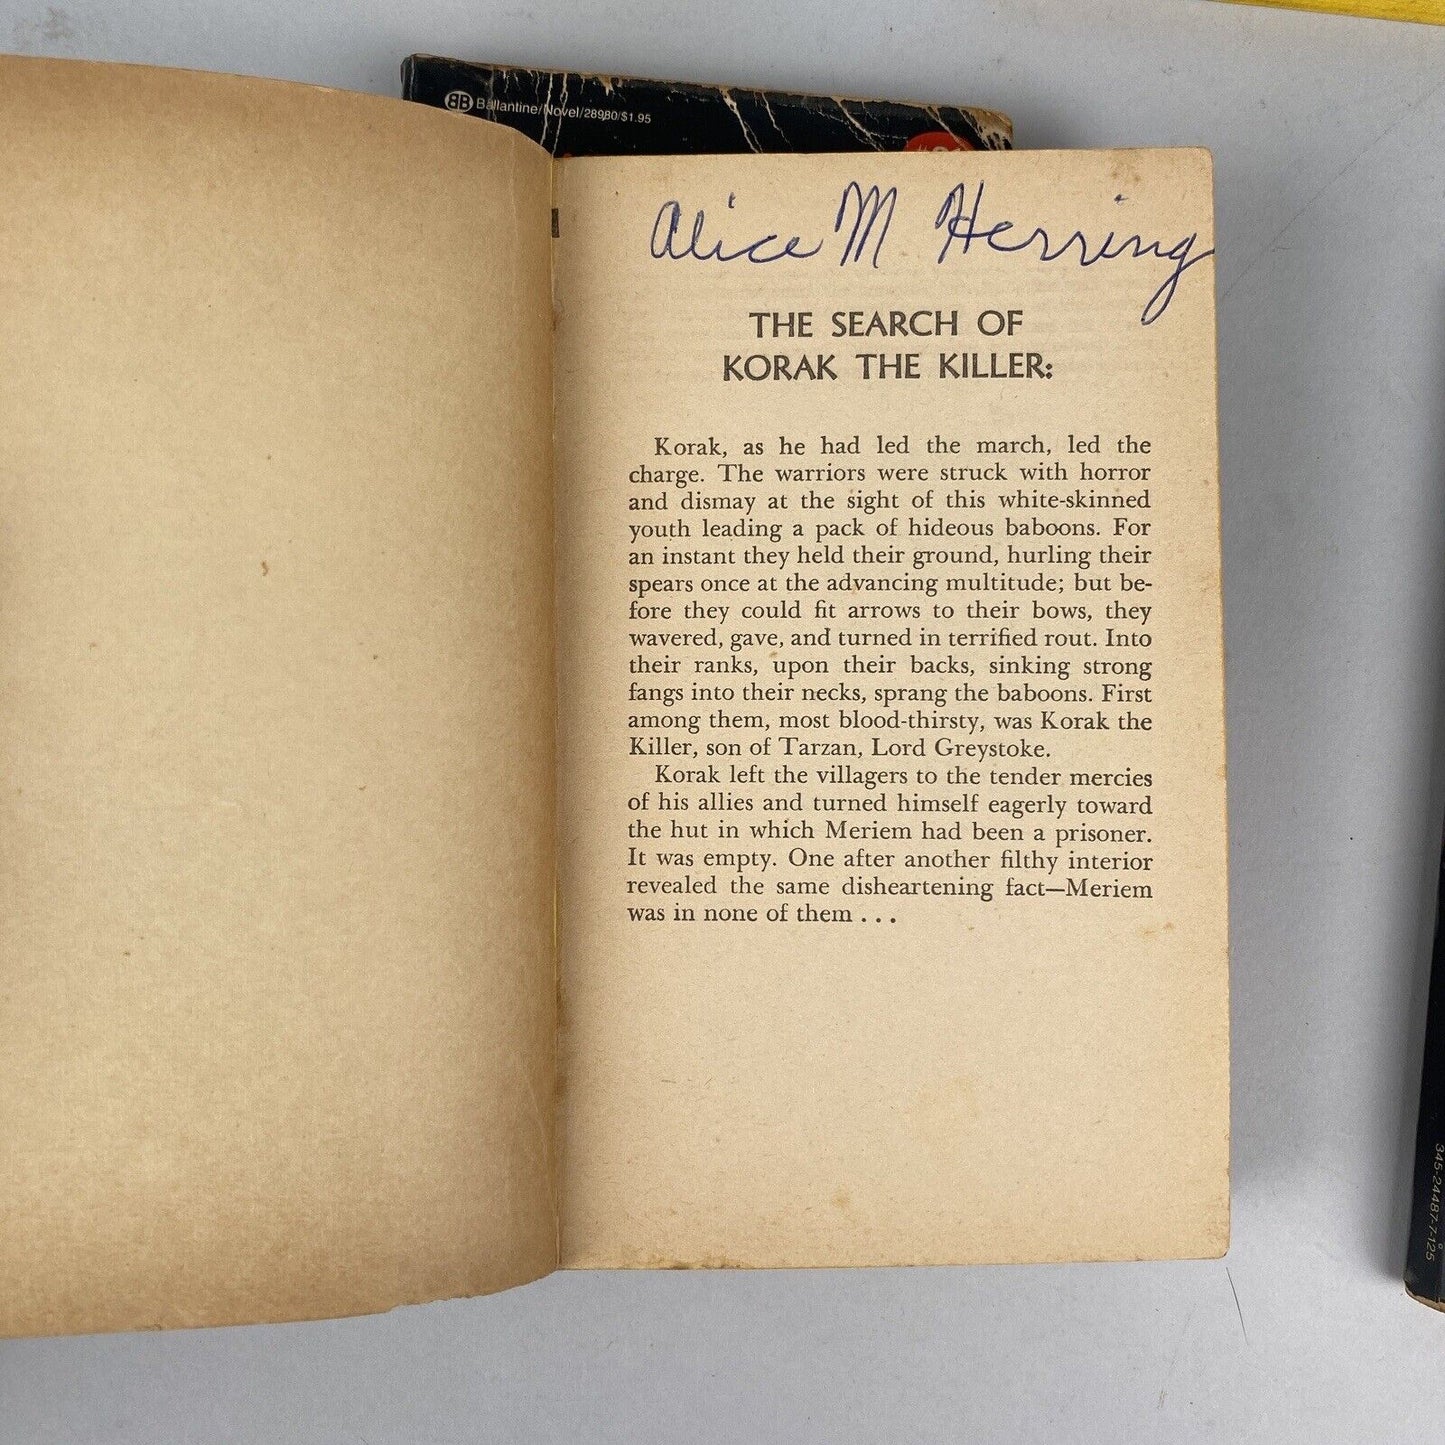 BB Ballantine/Novel/28980/$1.95
Alice M Herring
THE SEARCH OF
KORAK THE KILLER:
Korak, as he had led the march, led the
charge. The warriors were struck with horror
and dismay at the sight of this white-skinned
youth leading a pack of hideous baboons. For
an instant they held their ground, hurling their
spears once at the advancing multitude; but be-
fore they could fit arrows to their bows, they
wavered, gave, and turned in terrified rout. Into
their ranks, upon their backs, sinking strong
fangs into their necks, sprang the baboons. First
among them, most blood-thirsty, was Korak the
Killer, son of Tarzan, Lord Greystoke.
Korak left the villagers to the tender mercies
of his allies and turned himself eagerly toward
the hut in which Meriem had been a prisoner.
It was empty. One after another filthy interior
revealed the same disheartening fact—Meriem
was in none of them . . .
345-24487-7-125